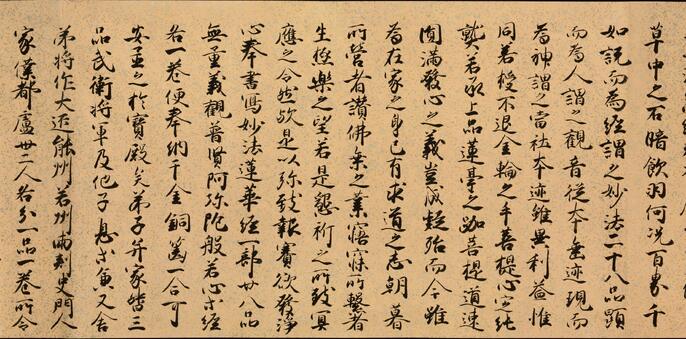 草中之石暗飲羽何況百界千
如説而為経謂之妙法二十八品顕
而為人謂之觀音従本垂迹現而
為神謂之當社本迹雖異利益惟
同若授不退金輪之手菩提心定純
熟若承上品蓮臺之跏菩提道速
圓満發心之義豈成疑殆而今雖
為在家之身已有求道之志朝暮
所營者讃佛乗之業寤寐所繫者
生極楽之望若是懇祈之所致冥
應之令然歟是以弥致報賽欲發浄
心奉書寫妙法蓮華經一部廿八品
無量義觀普賢阿弥陀般若心等経
各一巻便奉納于金銅篋一合可
安置之於寶殿矣弟子并家督三
品武衛将軍及他子息等兼又舎
弟将作大匠能州若州両刺史門人
家僕都盧卅二人各分一品一巻所令